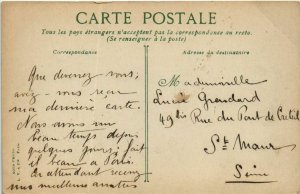 CARTE POSTALE
Tous les pays étrangers n'acceptent pas la correspondance au recto.
(Se renseigner à la poste)
Correspondance
Adresse du destinataire
Que devenez-vous,
avez-vous reçu
ma dernière carte.
Nous avons un
beau temps depuis
quelques jours, fait
il beau à Paris.
En attendant recevez
nos meilleures amitiés
Mademoiselle
Lucie
49 bis Rue du Pont de Créteil
St Maur
Seine